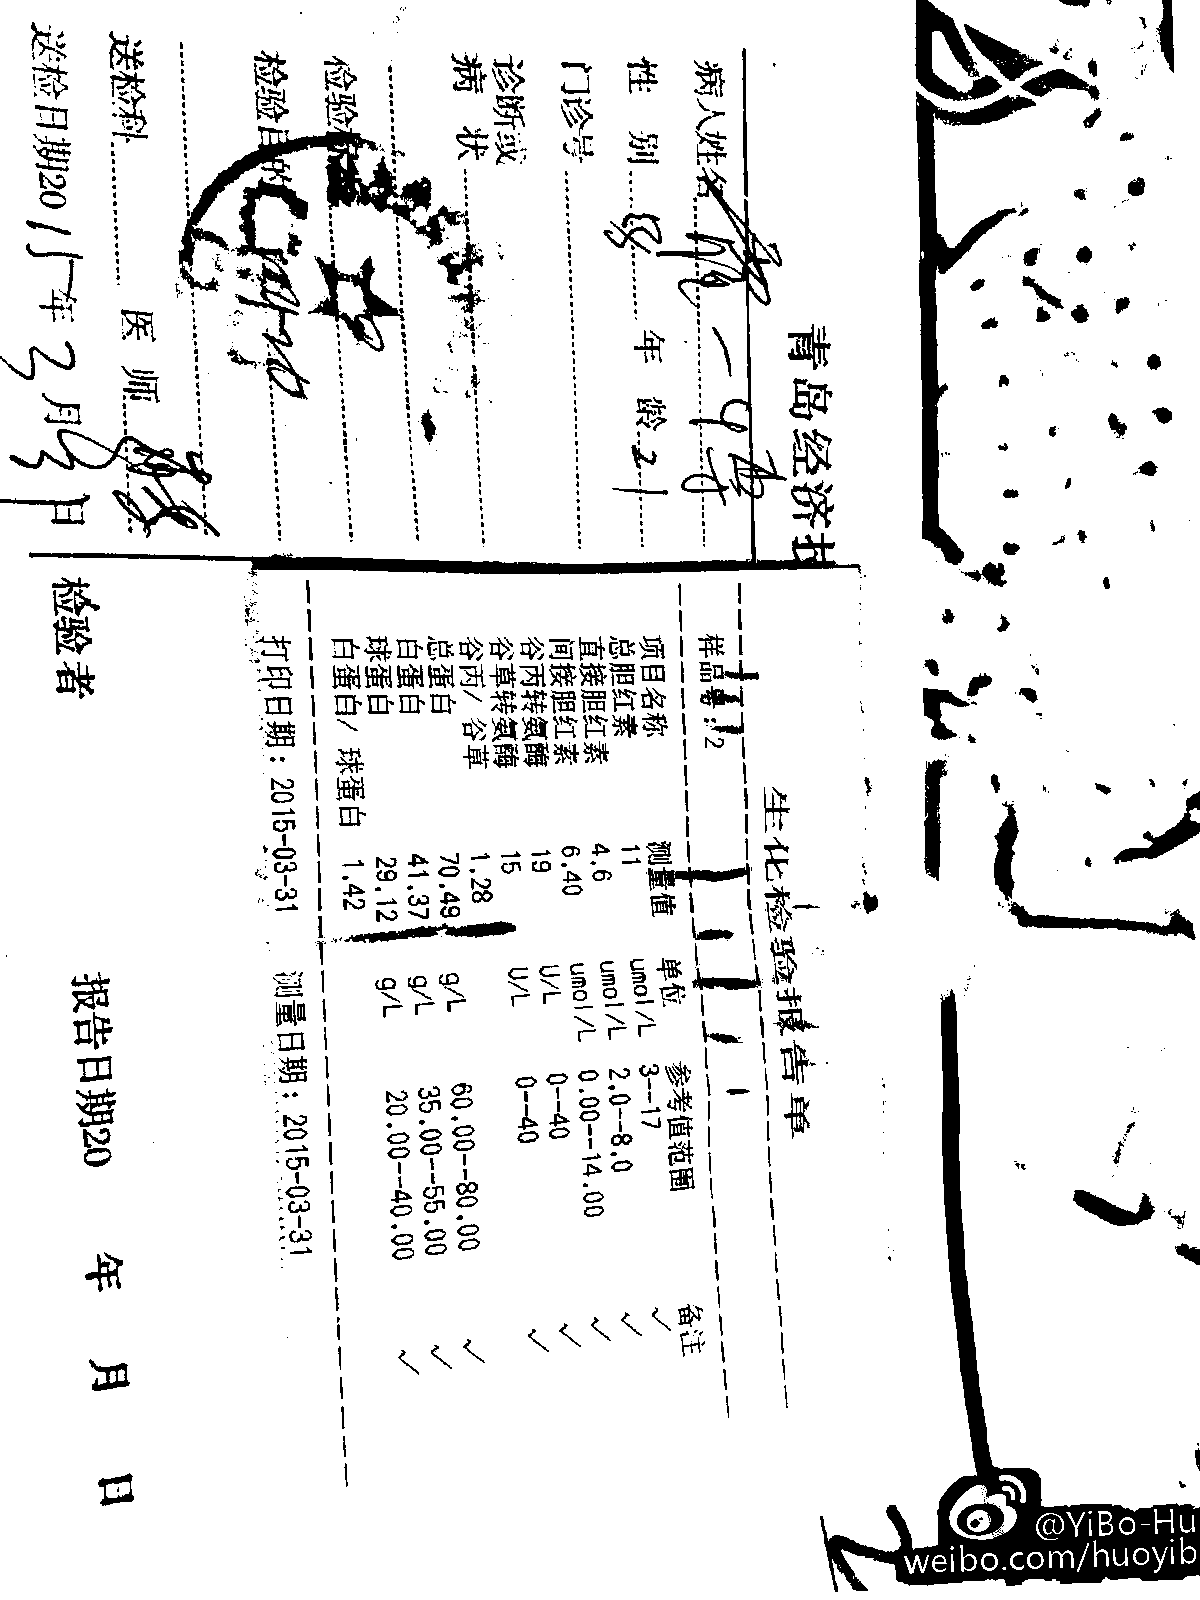 青岛经济技
病人姓名
性 别 年 龄 21
门诊号
诊断或
病 状
检验
检验目的
送检科 医 师
送检日期2015年3月31日
生化检验报告单
样品号:12
项目名称 测量值 单位 参考值范围 备注
总胆红素 11 umol/L 3--17 ✓
直接胆红素 4.6 umol/L 2.0--8.0 ✓
间接胆红素 6.40 umol/L 0.00--14.00 ✓
谷丙转氨酶 19 U/L 0--40 ✓
谷草转氨酶 15 U/L 0--40 ✓
谷丙/谷草 1.28
总蛋白 70.49 g/L 60.00--80.00 ✓
白蛋白 41.37 g/L 35.00--55.00 ✓
球蛋白 29.12 g/L 20.00--40.00 ✓
白蛋白/球蛋白 1.42
打印日期:2015-03-31 测量日期:2015-03-31
检验者 报告日期20 年 月 日
@YiBo-Hu
weibo.com/huoyib